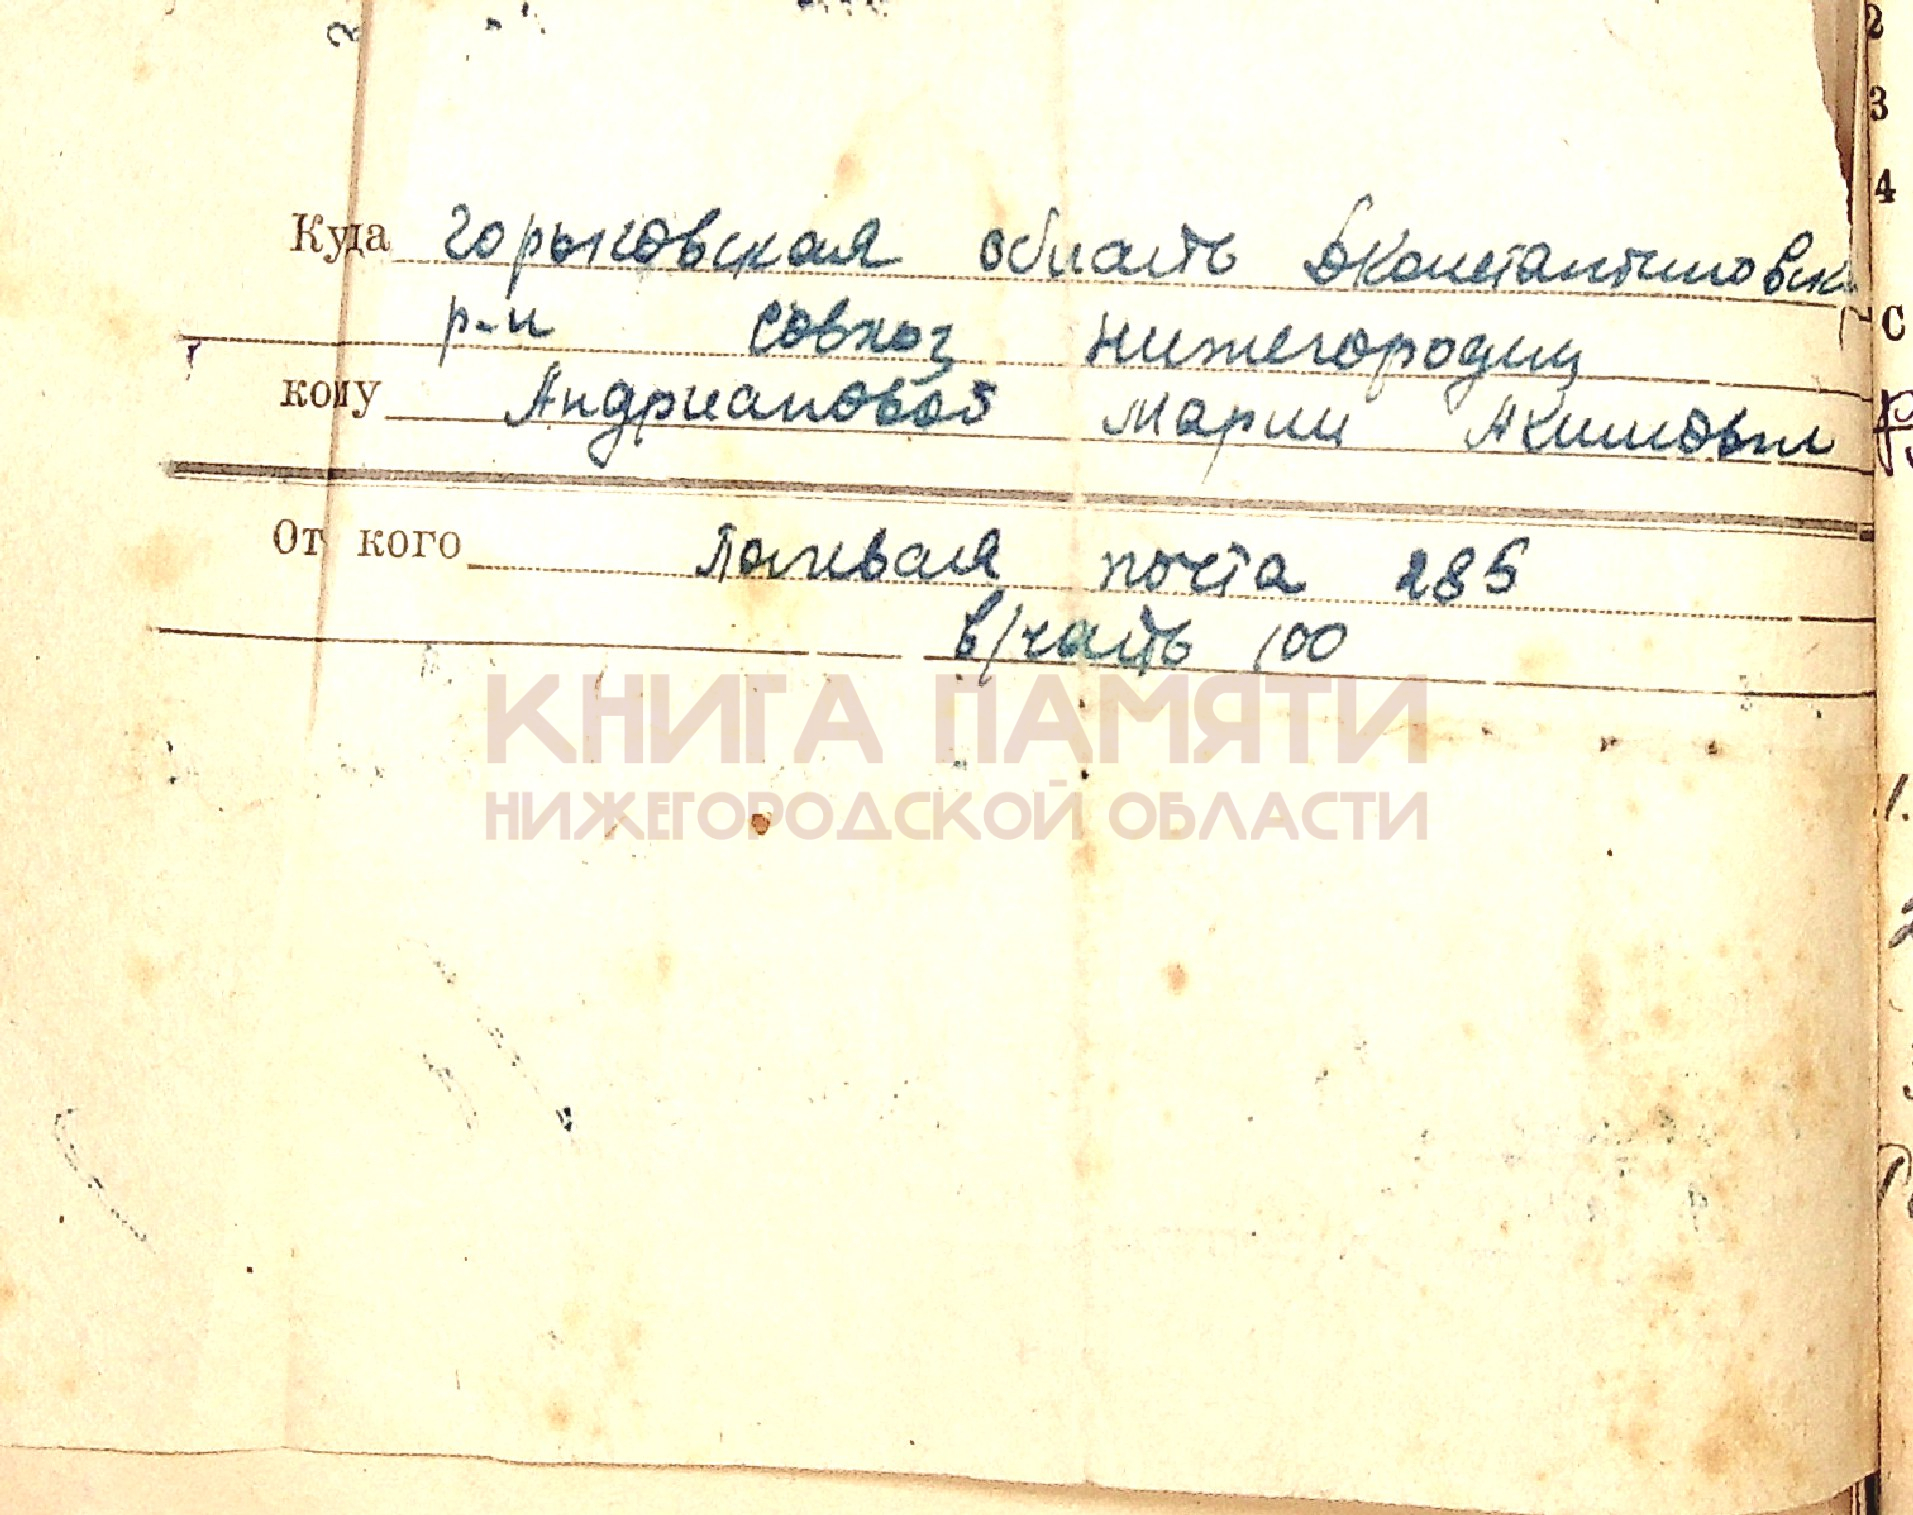 Куда Горьковская область Дконстантиновск
р-н совхоз нижегородец
кому Андриановой Марии Акимовн
От кого Полевая почта 285
в/часть 100
КНИГА ПАМЯТИ
НИЖЕГОРОДСКОЙ ОБЛАСТИ
2
3
4
С
1.